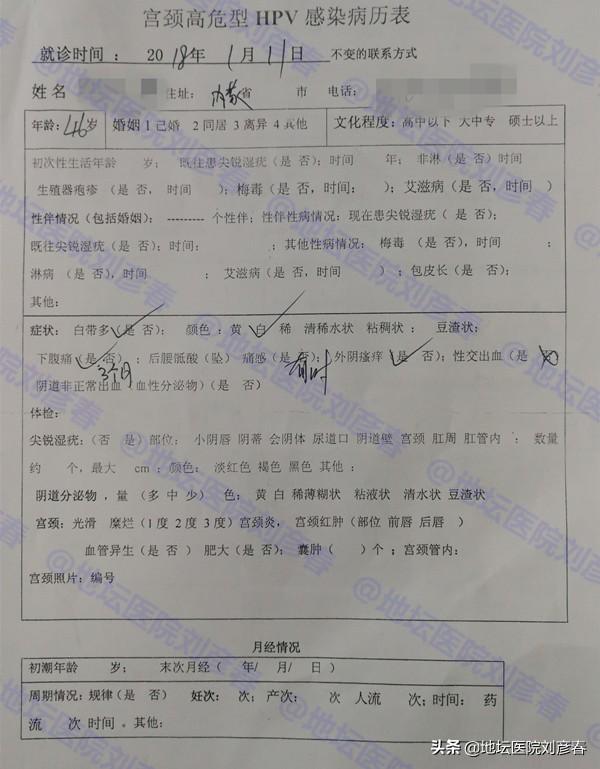 宫颈高危型 HPV 感染病历表
就诊时间： 2018年 1月11日 不变的联系方式
姓名 住址： 内蒙省 市 电话：
年龄：46岁 婚姻 1 己婚 2 同居 3 离异 4 其他 文化程度：高中以下 大中专 硕士以上
初次性生活年龄 岁； 既往患尖锐湿疣（是 否）；时间 年； 非淋（是 否）时间
生殖器疱疹（是 否， 时间 ）；梅毒（是 否，时间： ）；艾滋病（是 否，时间 ）
性伴情况（包括婚姻）： --------- 个性伴；性伴性病情况：现在患尖锐湿疣（ 是 否）；
既往尖锐湿疣（是 否）；时间： ；其他性病情况： 梅毒 （是 否），时间 ；
淋病 （是 否），时间 ； 艾滋病（是 否，时间 ）；包皮长（是 否）；
其他：
症状： 白带多（是 否）； 颜色：黄 白 稀 清稀水状 粘稠状： 豆渣状；
下腹痛（是 否） ；后腰骶酸（坠） 痛感（是 否）；外阴瘙痒（是 否）；性交出血（是 否）
3个月 有时
阴道非正常出血（血性分泌物）（是 否）
体检：
尖锐湿疣：（否 是）部位： 小阴唇 阴蒂 会阴体 尿道口 阴道壁 宫颈 肛周 肛管内 ： 数量
约 个，最大 cm；颜色： 淡红色 褐色 黑色 其他：
阴道分泌物，量 （多 中 少） 色： 黄 白 稀薄糊状 粘液状 清水状 豆渣状
宫颈：光滑 糜烂（1 度 2 度 3 度）宫颈炎， 宫颈红肿（部位 前唇 后唇 ）
血管异生（是 否 ） 肥大（是 否）； 囊肿（ ）个 ；宫颈管内：
宫颈照片：编号
月经情况
初潮年龄 岁； 末次月经（ 年/ 月/ 日 ）
周期情况：规律（是 否） 妊次： 次；产次： 次 人流 次；时间： 药
流 次 时间 。其他：
@地坛医院刘彦春
头条 @地坛医院刘彦春